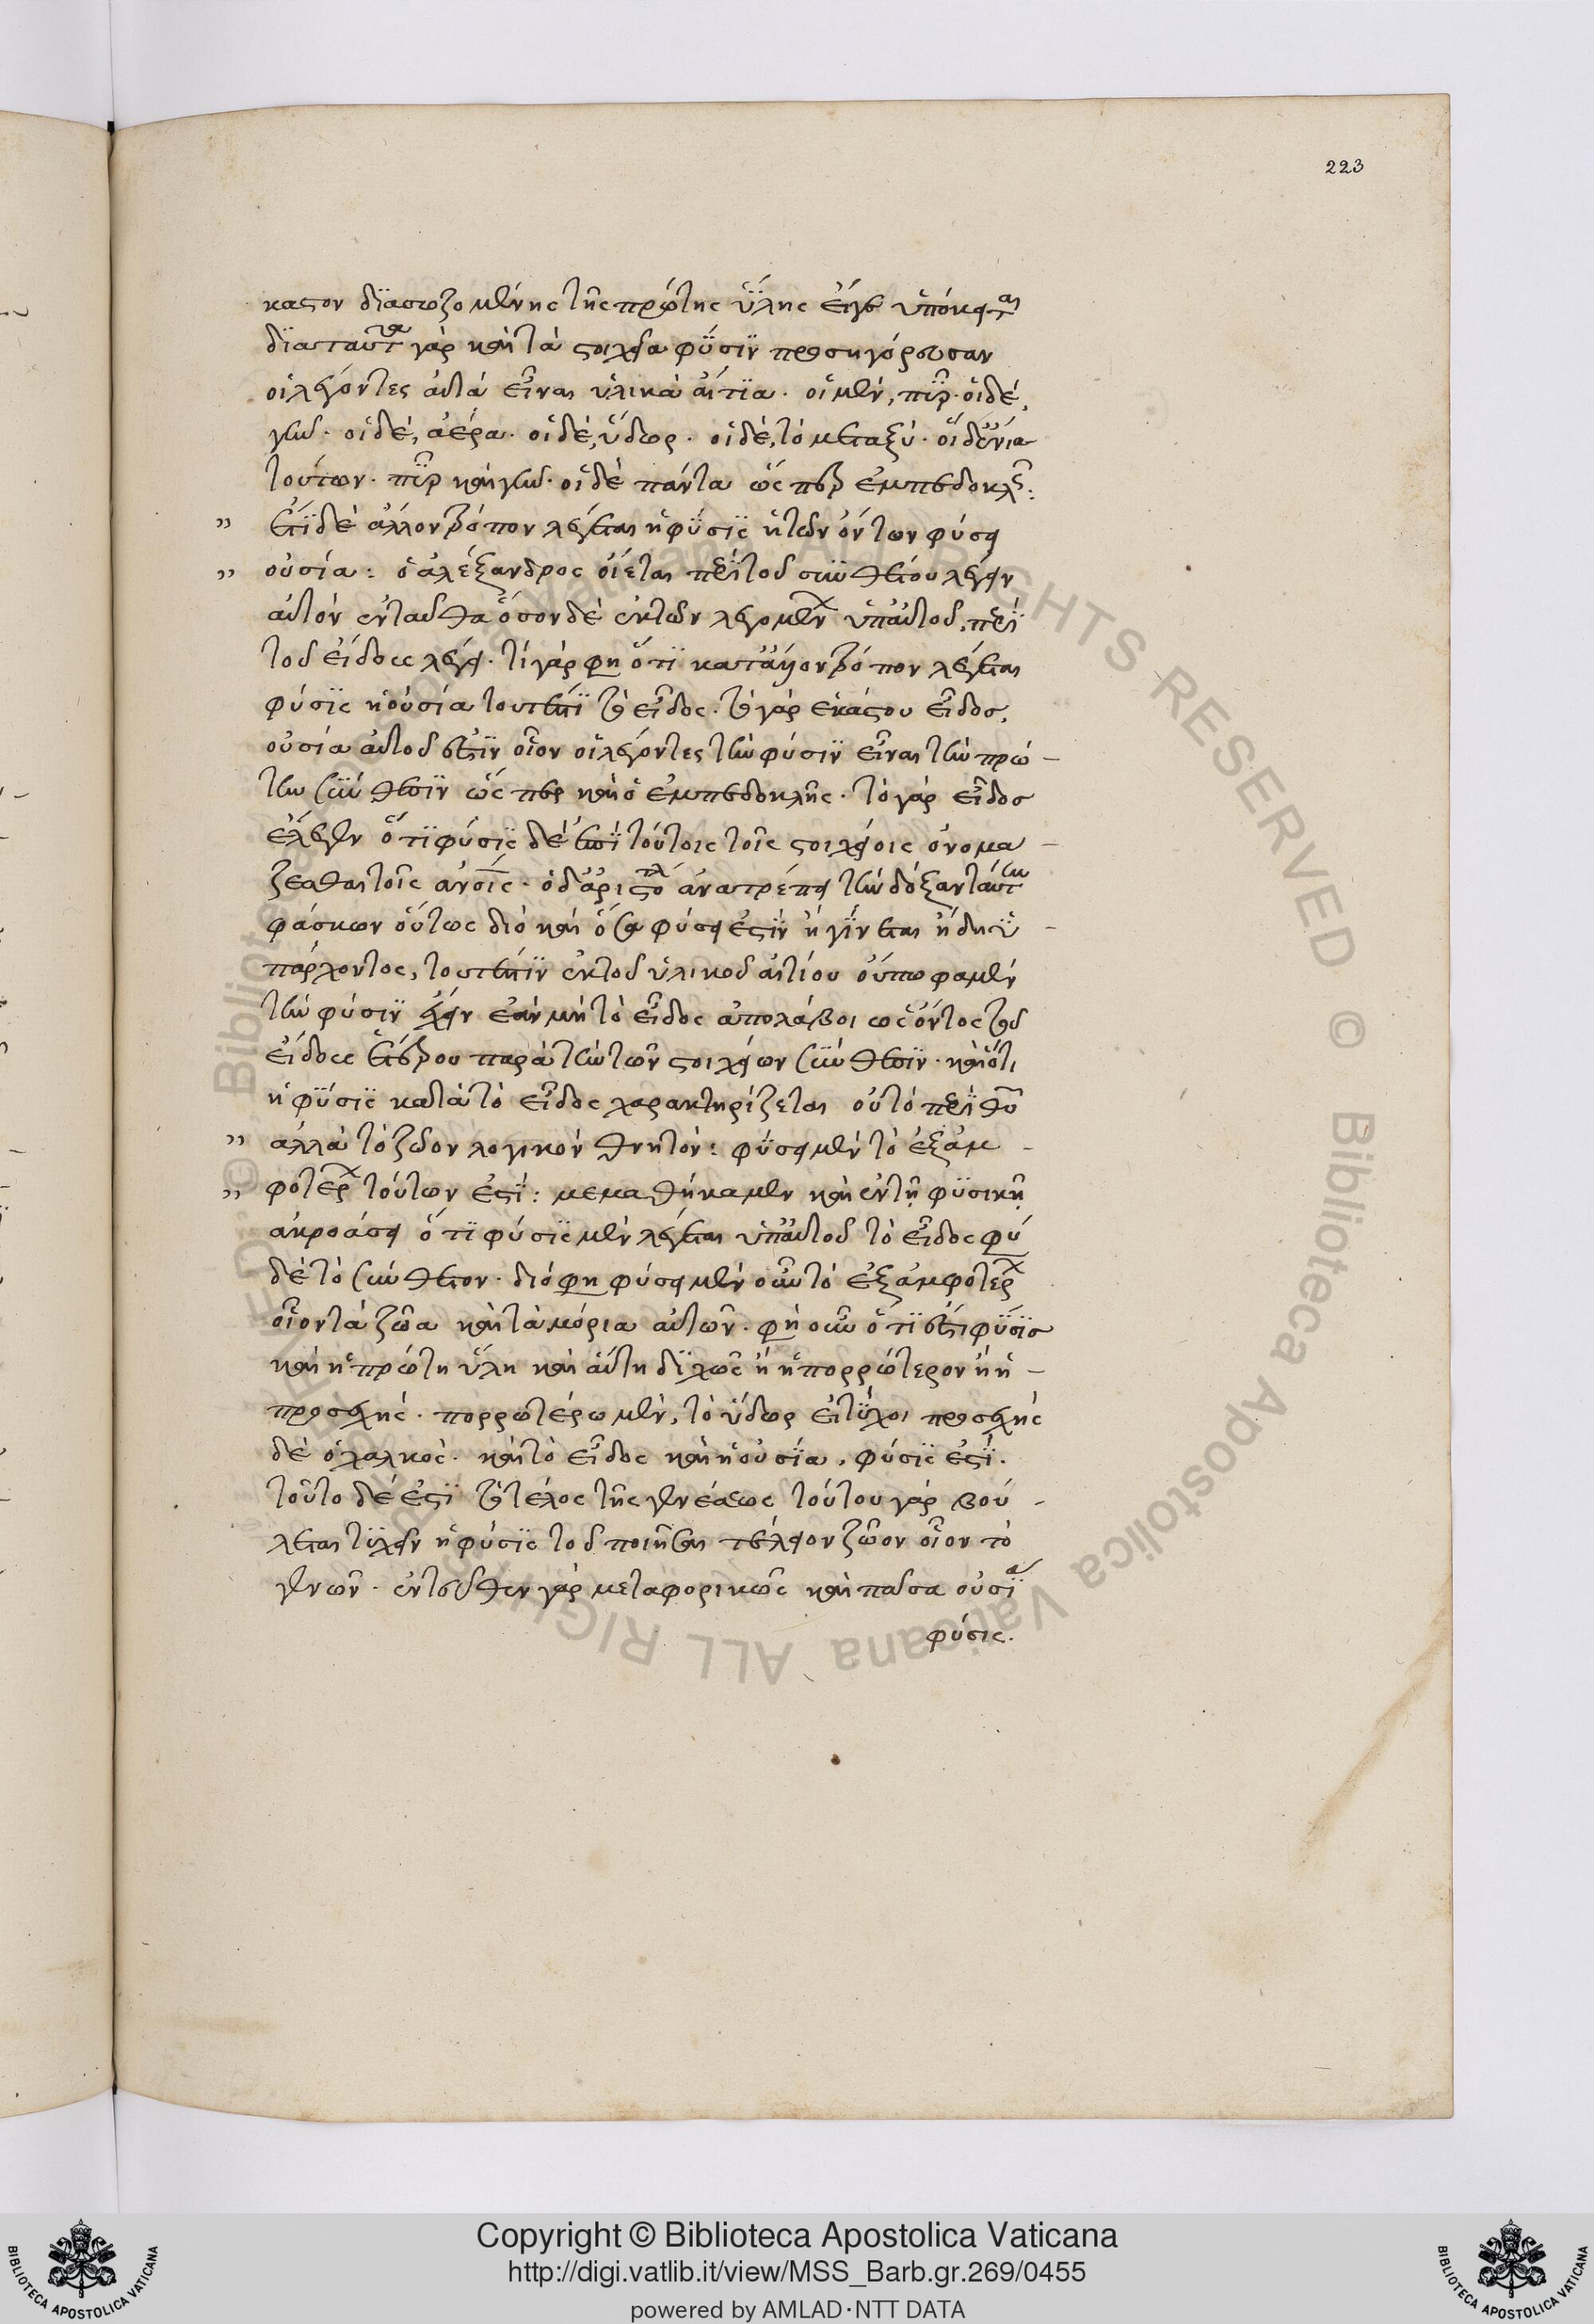 223
καστον διασωζομένης τῆς πρώτης ὕλης εἴγε ὑπόκειται
διὰ ταύτην γὰρ καὶ τὰ στοιχεῖα φύσιν προσηγόρευσαν
οἱ λέγοντες αὐτὰ εἶναι ὑλικὰ αἴτια. οἱ μὲν, πῦρ. οἱ δὲ,
γῆν. οἱ δὲ, ἀέρα. οἱ δὲ, ὕδωρ. οἱ δὲ, τὸ μεταξύ. οἱ δ' ἔνια
τούτων. πῦρ καὶ γῆν. οἱ δὲ πάντα ὥσπερ ἐμπεδοκλῆς:
" ἔτι δὲ ἄλλον τρόπον λέγεται ἡ φύσις ἡ τῶν ὄντων φύσει
" οὐσία: ὁ ἀλέξανδρος οἴεται περὶ τοῦ συνθέτου λέγειν
αὐτὸν ἐνταῦθα ὅσον δὲ ἐκ τῶν λεγομένων ὑπ' αὐτοῦ, περὶ
τοῦ εἴδους λέγει. τί γάρ φησιν ὅτι κατ' ἄλλον τρόπον λέγεται
φύσις ἡ οὐσία τουτέστι τὸ εἶδος. τὸ γὰρ ἑκάστου εἶδος,
οὐσία αὐτοῦ ἐστιν οἷον οἱ λέγοντες τὴν φύσιν εἶναι τὴν πρώ-
την σύνθεσιν ὥσπερ καὶ ὁ ἐμπεδοκλῆς. τὸ γὰρ εἶδος
ἔλεγεν ὅτι φύσις δὲ ἐπὶ τούτοις τοῖς στοιχείοις ὀνομά-
ζεσθαι τοῖς ἀνοις. ὁ δ' ἀριστοτέλης ἀνατρέπει τὴν δόξαν ταύτην
φάσκων οὕτως διὸ καὶ ὅσα φύσει ἐστὶν ἢ γίνεται ἤδη ὑ-
πάρχοντος, τουτέστιν ἐκ τοῦ ὑλικοῦ αἰτίου οὔπω φαμὲν
τὴν φύσιν ἔχειν ἐὰν μὴ τὸ εἶδος ἀπολάβοι ὡς ὄντος τοῦ
εἴδους ἑτέρου παρὰ τὴν τῶν στοιχείων σύνθεσιν. καὶ ὅτι
ἡ φύσις κατὰ τὸ εἶδος χαρακτηρίζεται οὐ τὸ
" ἀλλὰ τὸ ζῶον λογικὸν θνητόν: φύσει μὲν τὸ ἐξ ἀμ-
" φοτέρων τούτων ἐστί: μεμαθήκαμεν καὶ ἐν τῇ φυσικῇ
ἀκροάσει ὅτι φύσις μὲν λέγεται ὑπ' αὐτοῦ τὸ εἶδος φύσει
δὲ τὸ σύνθετον. διό φησι φύσει μὲν οὖν τὸ ἐξ ἀμφοτέρων
οἷον τὰ ζῶα καὶ τὰ μόρια αὐτῶν. φησὶν οὖν ὅτι ἐστὶ φύσις
καὶ ἡ πρώτη ὕλη καὶ αὕτη διχῶς ἢ ἡ πορρώτερον ἢ ἡ-
προσεχής. πορρωτέρω μὲν, τὸ ὕδωρ εἰ τύχοι προσεχὴς
δὲ ὁ χαλκός. καὶ τὸ εἶδος καὶ ἡ οὐσία, φύσις ἐστί.
τοῦτο δέ ἐστι τὸ τέλος τῆς γενέσεως τούτου γὰρ βού-
λεται τυχεῖν ἡ φύσις τοῦ ποιῆσαι τέλειον ζῶον οἷον τὸ
γεννῶν. ἐντεῦθεν γὰρ μεταφορικῶς καὶ πᾶσα οὐσία
φύσις.
© Biblioteca Apostolica Vaticana ALL RIGHTS RESERVED
Copyright © Biblioteca Apostolica Vaticana
http://digi.vatlib.it/view/MSS_Barb.gr.269/0455
powered by AMLAD·NTT DATA
BIBLIOTECA APOSTOLICA VATICANA
BIBLIOTECA APOSTOLICA VATICANA